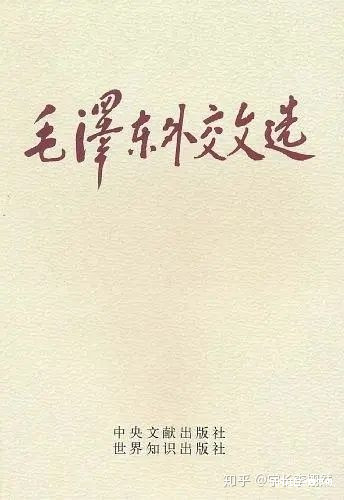 毛澤东外交文选
中央文献出版社
世界知识出版社
知乎